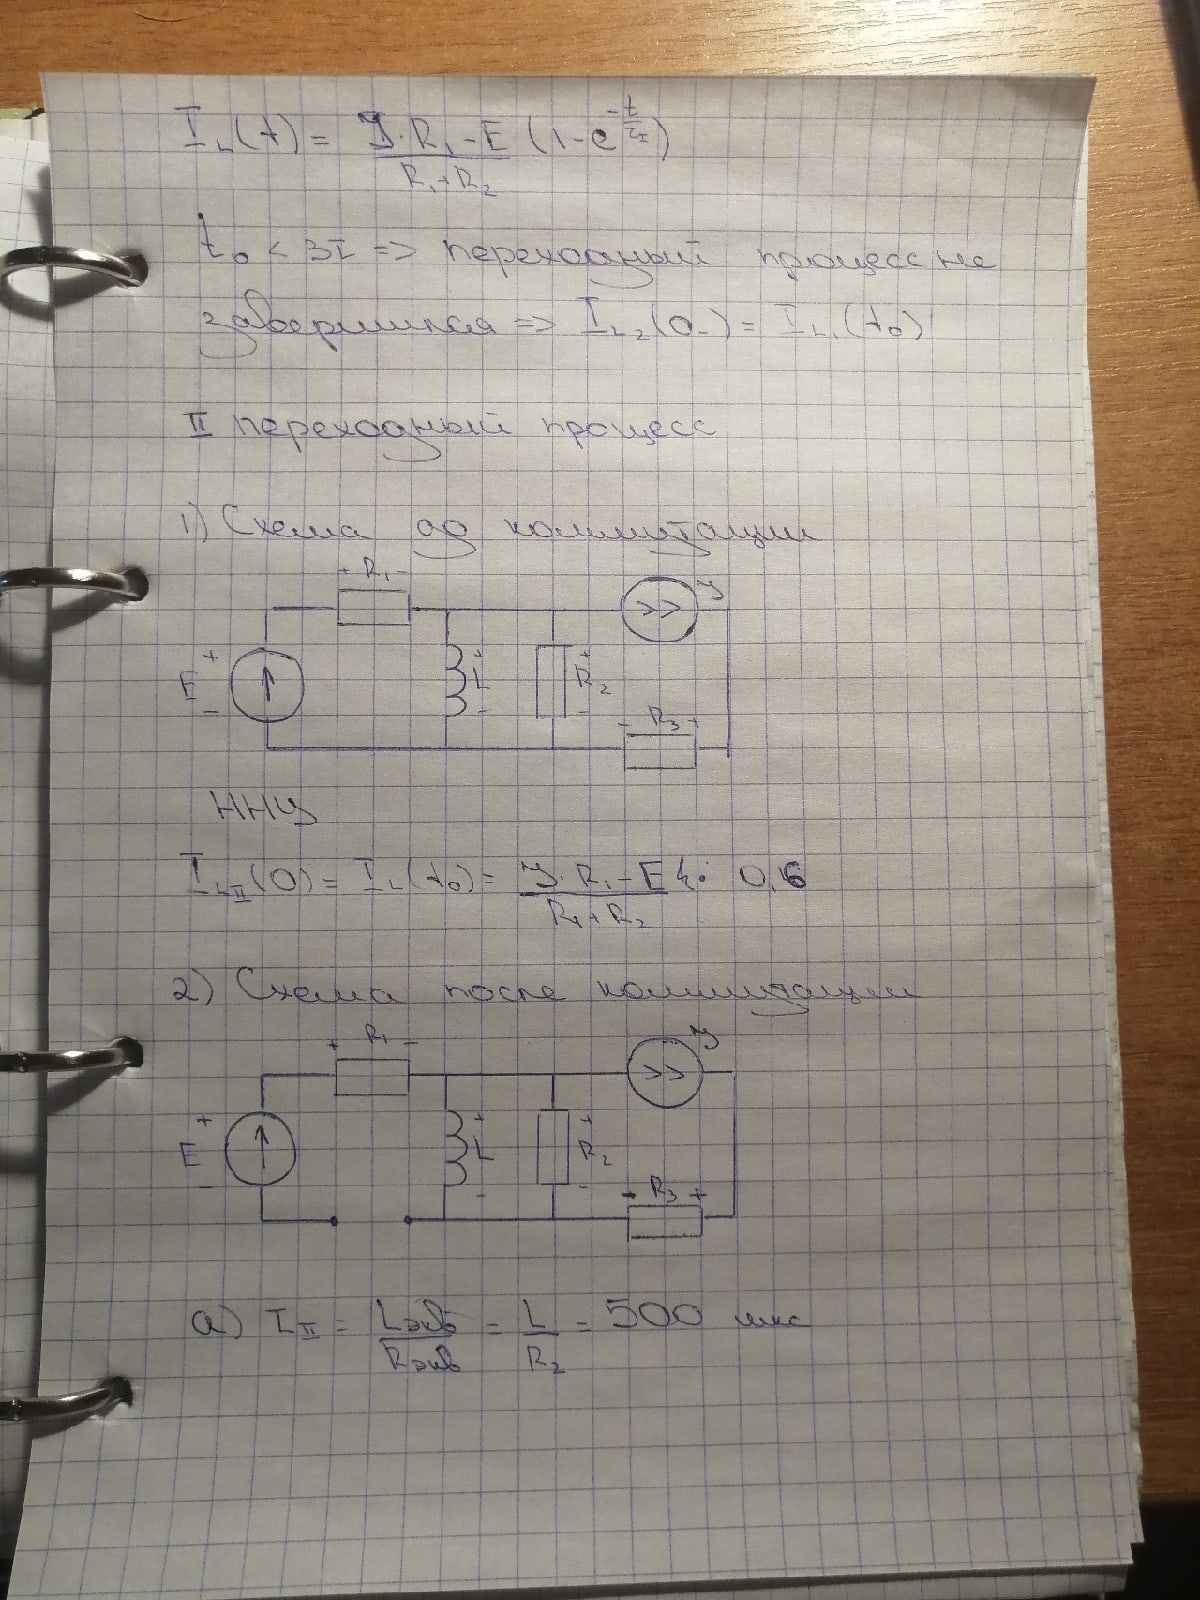 I_L(t) = (J·R₁-E)/(R₁+R₂) (1-e^(-t/τ_I))
t₀ < 3τ => переходный процесс не
завершился => I_L₂(0-) = I_L₁(t₀)
II переходный процесс
1) Схема до коммутации
+ R₁ -
J
E + -
+ L -
+ R₂ -
- R₃ +
ННУ
I_LII(0) = I_L(t₀) = (J·R₁-E)/(R₁+R₂) 0,6
2) Схема после коммутации
+ R₁ -
J
E + -
+ L -
+ R₂ -
- R₃ +
а) τ_II = Lэкв/Rэкв = L/R₂ = 500 мкс